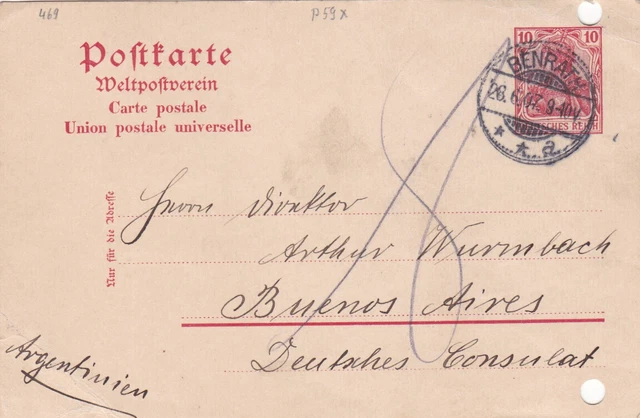 469
P59x
Postkarte
Weltpostverein
Carte postale
Union postale universelle
10 10
BENRATH
26.6.07. 9-10V
* * a
DEUTSCHES REICH
Nur für die Adresse
Herrn Direktor
Arthur Wurmbach
Buenos Aires
Deutsches Consulat
Argentinien